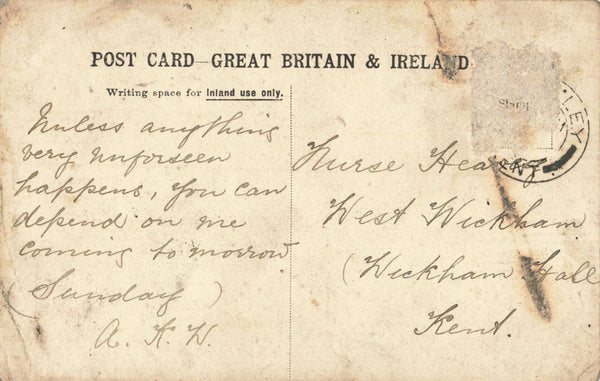 POST CARD—GREAT BRITAIN & IRELAND.
Writing space for Inland use only.
Stamp
LEY
Unless anything
very unforseen
happens, you can
depend on me
coming to morrow
(Sunday)
A. K. W.
Nurse
West Wickham
(Wickham Hall
Kent.